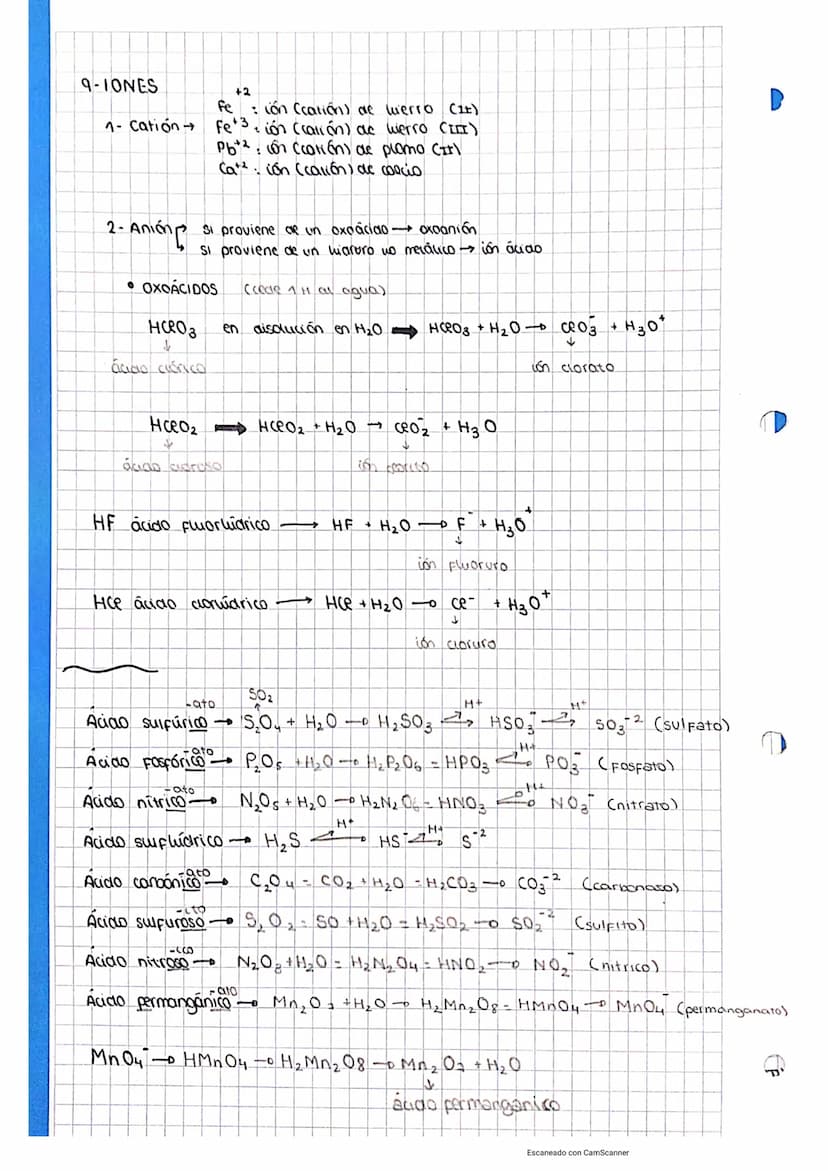 9-IONES
1- Catión → Fe⁺² : ión (catión) de hierro (II)
Fe⁺³ : ión (catión) de hierro (III)
Pb⁺² : ión (catión) de plomo (II)
Ca⁺² : ión (catión) de calcio
2- Anión → si proviene de un oxoácido → oxoanión
↳ si proviene de un hidruro no metálico → ión ácido
• OXOÁCIDOS (cede 1 H al agua)
HClO₃ en disolución en H₂O ➡ HClO₃ + H₂O → ClO₃⁻ + H₃O⁺
↓ ↓
ácido clórico ión clorato
HClO₂ ⟹ HClO₂ + H₂O → ClO₂⁻ + H₃O
↓ ↓
ácido cloroso ión clorito
HF ácido fluorhídrico → HF + H₂O → F⁻ + H₃O⁺
↓
ión fluoruro
HCl ácido clorhídrico → HCl + H₂O → Cl⁻ + H₃O⁺
↓
ión cloruro
-ato SO₂
Ácido sulfúrico → S₂O₄ + H₂O → H₂SO₃ ⇄ H⁺ HSO₃⁻ ⇄ H⁺ SO₃⁻² (sulfato)
-ato
Ácido fosfórico → P₂O₅ + H₂O → H₂P₂O₆ = HPO₃ ⇄ H⁺ PO₃⁻ (fosfato)
-ato
Ácido nítrico → N₂O₅ + H₂O → H₂N₂O₆ = HNO₃ ⇄ H⁺ NO₃⁻ (nitrato)
Ácido sulfhídrico → H₂S ⇄ H⁺ HS⁻ ⇄ H⁺ S⁻²
-ato
Ácido carbónico → C₂O₄ = CO₂ + H₂O = H₂CO₃ → CO₃⁻² (carbonaso)
-ito
Ácido sulfuroso → S₂O₂ = SO + H₂O = H₂SO₂ → SO₂⁻² (sulfito)
-ico
Ácido nitroso → N₂O₃ + H₂O = H₂N₂O₄ = HNO₂ → NO₂⁻ (nitrico)
-ato
Ácido permangánico → Mn₂O₇ + H₂O → H₂Mn₂O₈ = HMnO₄ → MnO₄⁻ (permanganato)
MnO₄⁻ → HMnO₄ → H₂Mn₂O8 → Mn₂O₇ + H₂O
↓
ácido permangánico
Escaneado con CamScanner